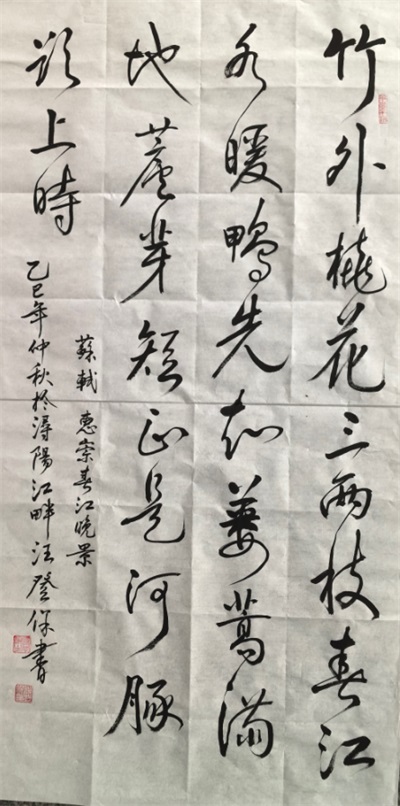 竹外桃花三两枝春江
水暖鸭先知蒌蒿满
地芦芽短正是河豚
欲上時
蘇軾惠崇春江晚景
乙巳年仲秋於潯陽江畔汪登保書